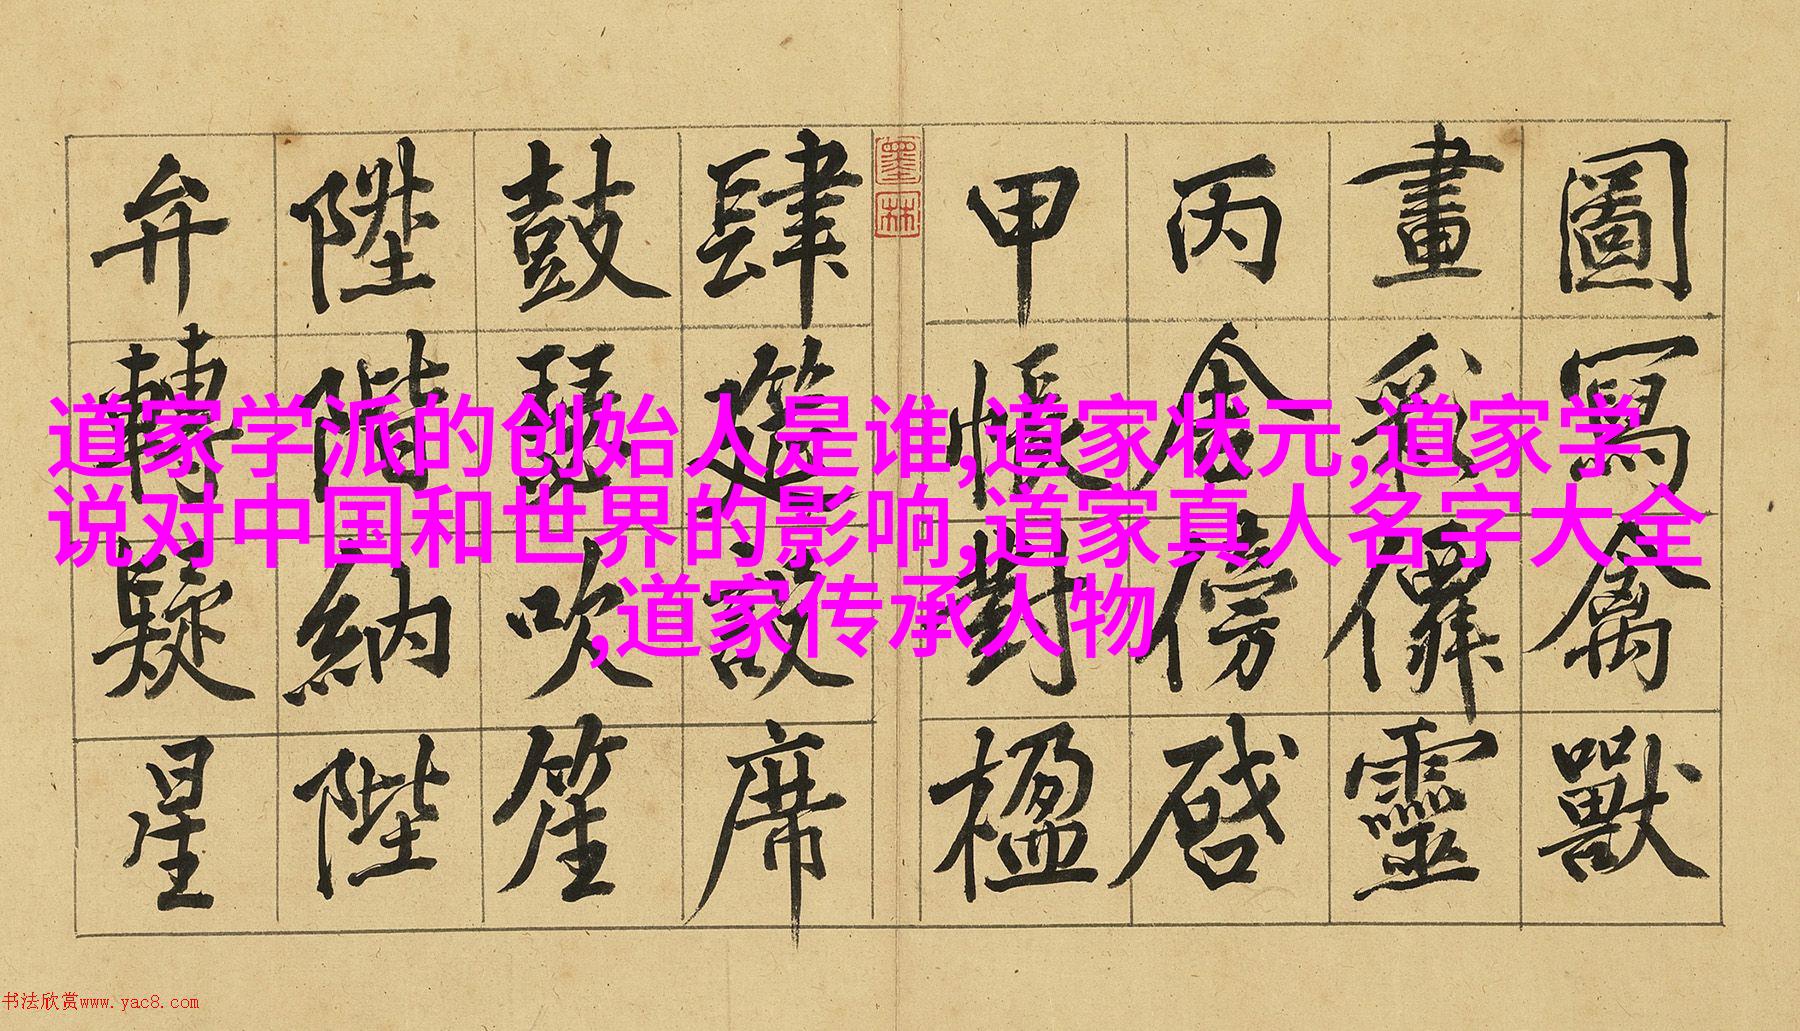 圖寫禽獸
畫彩僊靈
丙舍傍啓
甲帳對楹
墨林
肆筵設席
鼓瑟吹笙
陞階納陛
弁轉疑星
道家学派的创始人是谁,道家状元,道家学
说对中国和世界的影响,道家真人名字大全
,道家传承人物
书法欣赏www.yac8.com